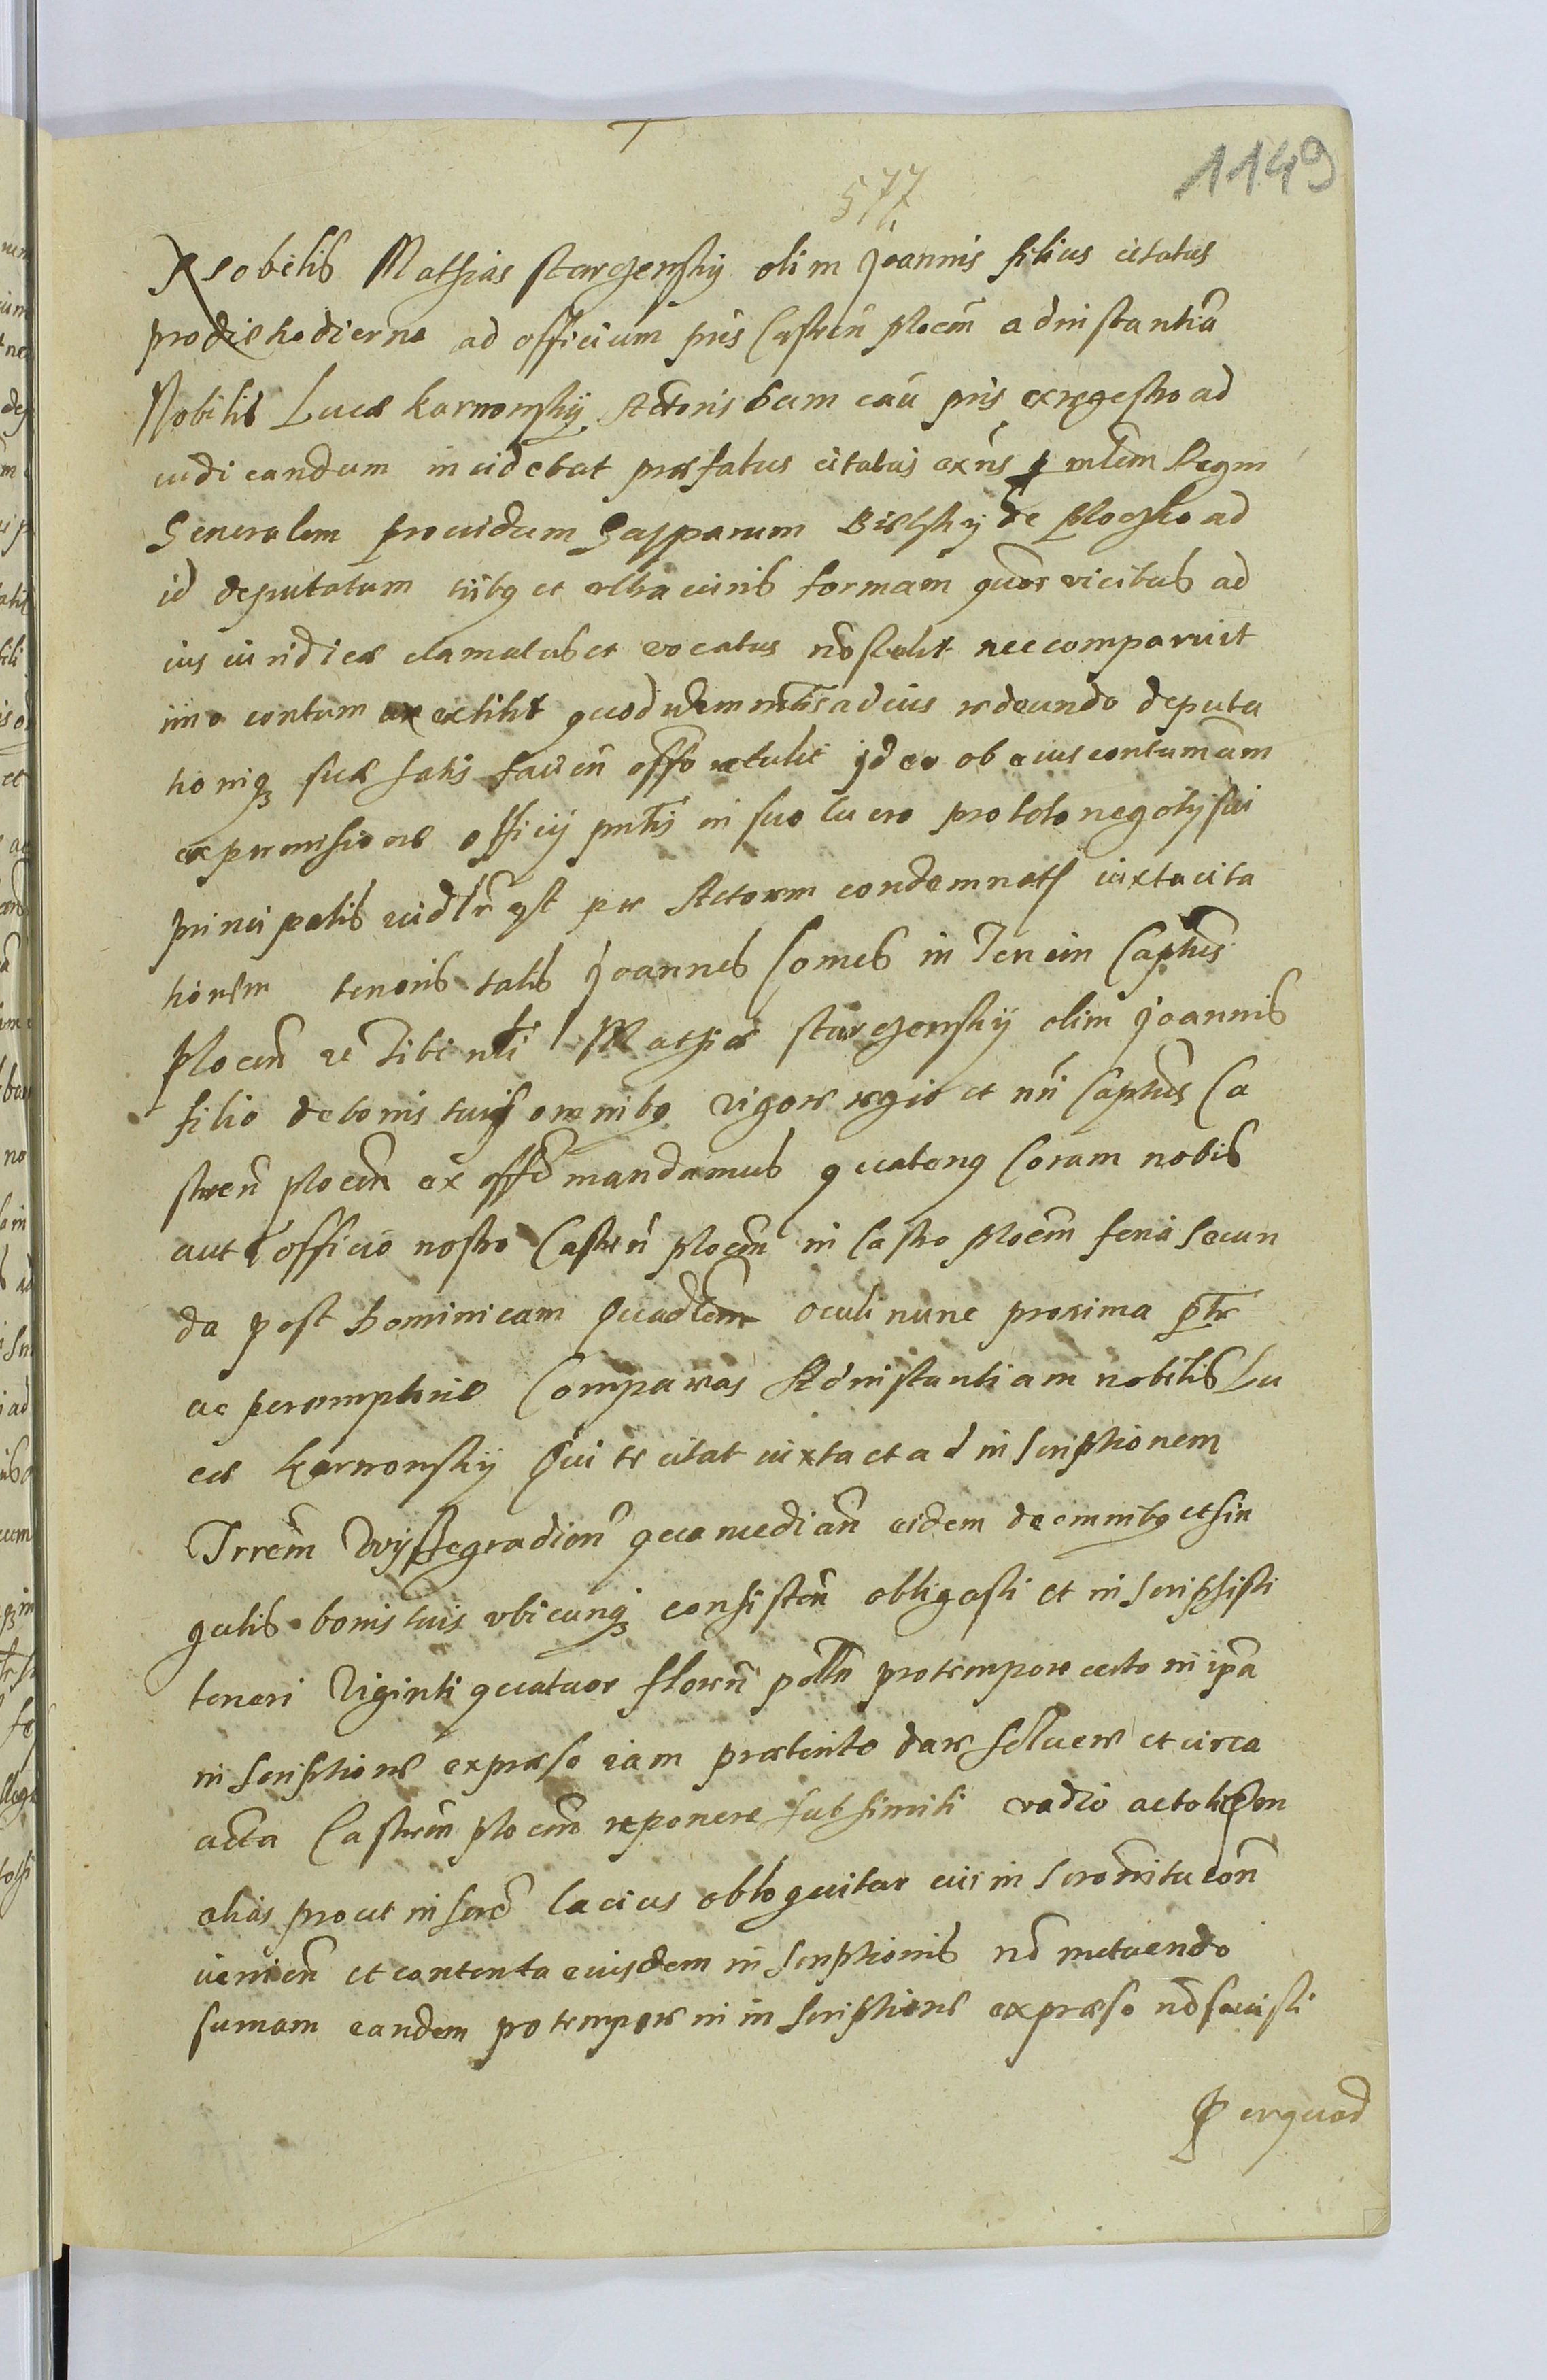 1149
577
Nobilis Mathias stargenskij olim Joannis filius citatus
pro die hodierna ad officium pñs Castreñ ploceñ ad instantiã
Nobilis Lucæ karnowskij Actoris dum cãu pñs ex regestro ad
iudicandum incidebat præfatus citatus exñs per mltem Regni
Generalem prouidum Gasparum Bielskij de Ploczko ad
id deputatum tribq et vltra iuris formam quòr vicibus ad
ius iuridicæ clamatus et vocatus nõ stetit nec comparuit
imo contum ax extitit quod idem mltis ad ius redeundo deputa
tioniq suæ satis facieñ offo retulit ideo ob eius contumãm
ex permissione officij pntis in suo lucro pro toto negotij sui
principalis est per Actorem condemnats iuxta cita
tionem tenoris talis Joannes Comes in Tencin Captũs
Ploceñ etc Tibi nbli Mathiæ stargenskij olim Joannis
filio de bonis tuis omnibq vigore regio et nri Captũs Ca
streñ ploceñ ex offo mandamus quatenq Coram nobis
aut officio nostro Castreñ ploceñ in Castro ploceñ feria secun
da post Dominicam Quadlem oculi nunc proxima ptr
ac peremptorie Compareas Ad instantiam nobilis Lu
cæ karnowskij Qui te citat iuxta et ad inscriptionem
Trrem Wyssegradien qua mediañ eidem de omnibq et sin
gulis bonis tuis vbicunq consisteñ obligasti et inscripsisti
teneri Viginti quatuor floreñ pollm pro tempore certo in ipa
inscriptione expræso iam præterito dare soluere et circa
acta Castreñ ploceñ reponere sub simili vadio ac toti poen
alias prout in lacius obloquitur cui inscromitu con
ueniẽn et contenta eiusdem inscriptionis nõ metuendo
sumam eandem pro tempore in inscriptione expræso nõ soluisti
Per quod